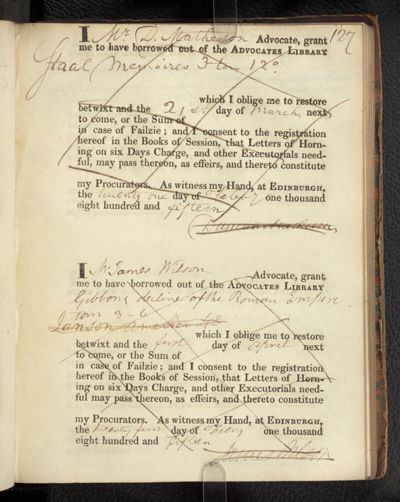 127
I Mr D. Matheson Advocate, grant
me to have borrowed out of the ADVOCATES LIBRARY
Staal Memoires 3 tom 12o
which I oblige me to restore
betwixt and the 21st day of March next
to come, or the Sum of
in case of Failzie; and I consent to the registration
hereof in the Books of Session, that Letters of Horn-
ing on six Days Charge, and other Executorials need-
ful, may pass thereon, as effeirs, and thereto constitute
my Procurators. As witness my Hand, at EDINBURGH,
the twenty one day of one thousand
eight hundred and fifteen
Duncan Matheson
I Mr James Wilson Advocate, grant
me to have borrowed out of the ADVOCATES LIBRARY
Gibbons decline of the Roman Empire
tom 3-6
which I oblige me to restore
betwixt and the first day of April next
to come, or the Sum of
in case of Failzie; and I consent to the registration
hereof in the Books of Session, that Letters of Horn-
ing on six Days Charge, and other Executorials need-
ful may pass thereon, as effeirs, and thereto constitute
my Procurators. As witness my Hand, at EDINBURGH,
the twenty first day of Feby one thousand
eight hundred and fifteen
James Wilson